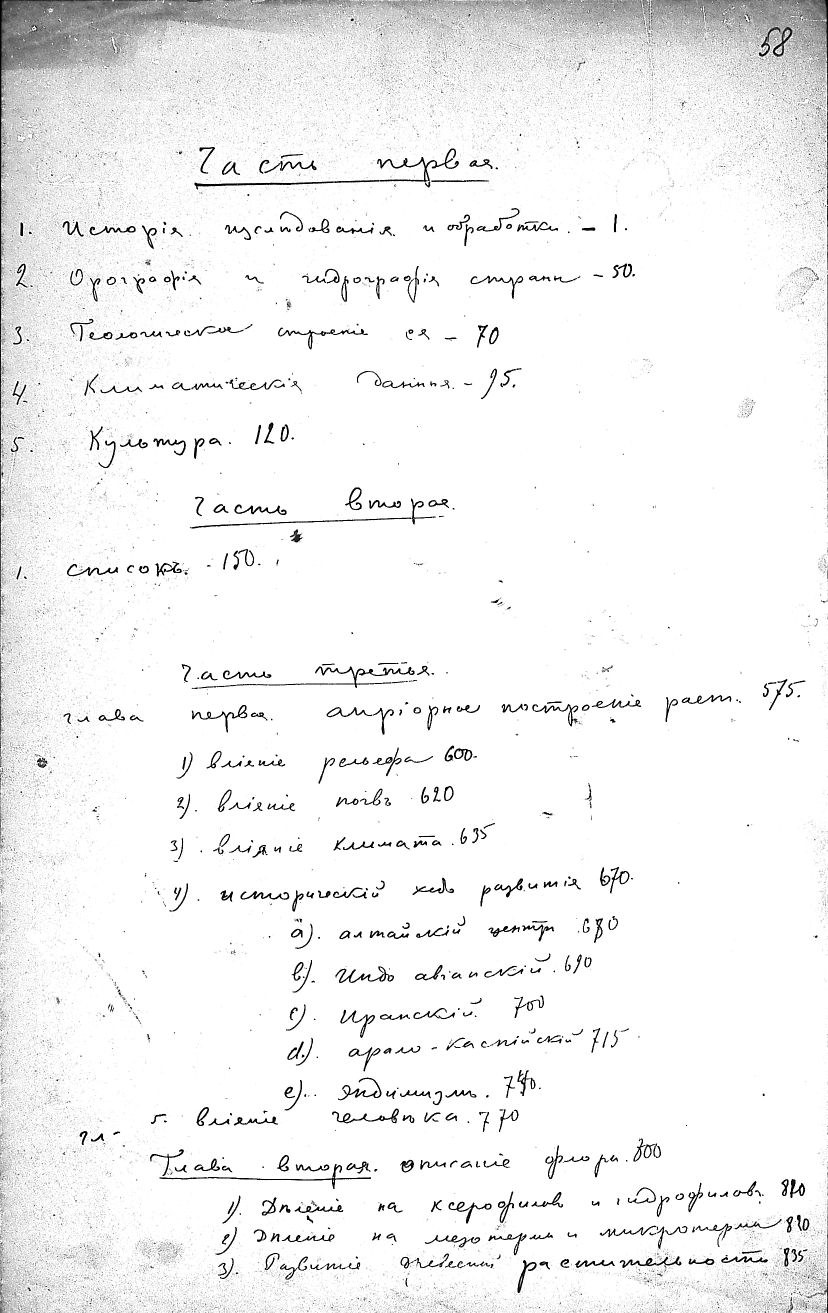 58
Часть первая.
1. Исторія изслѣдованія и обработки. – 1.
2. Орографія и гидрографія страны – 50.
3. Геологическое строеніе ея – 70
4. Климатическія данныя. – 95.
5. Культура. 120.
Часть вторая.
1. списокъ. 150.
Часть третья.
глава первая. апріорное построеніе раст. 575.
1) вліяніе рельефа 600.
2). вліяніе почвъ 620
3) вліяніе климата. 635
4). историческій ходъ развитія 670.
a). алтайскій центръ 680
b). Индо авіанскій. 690
c). Иранскій. 700
d.). арало-каспійскій 715
e). Эндимизмъ. 740.
5. вліяніе человѣка. 770
гл-
Глава вторая. описаніе флоры. 800
1). Дѣленіе на ксерофиловъ и гидрофиловъ 810
2) Дѣленіе на мезотермы и микротермы 820
3). Развитіе растительности 835